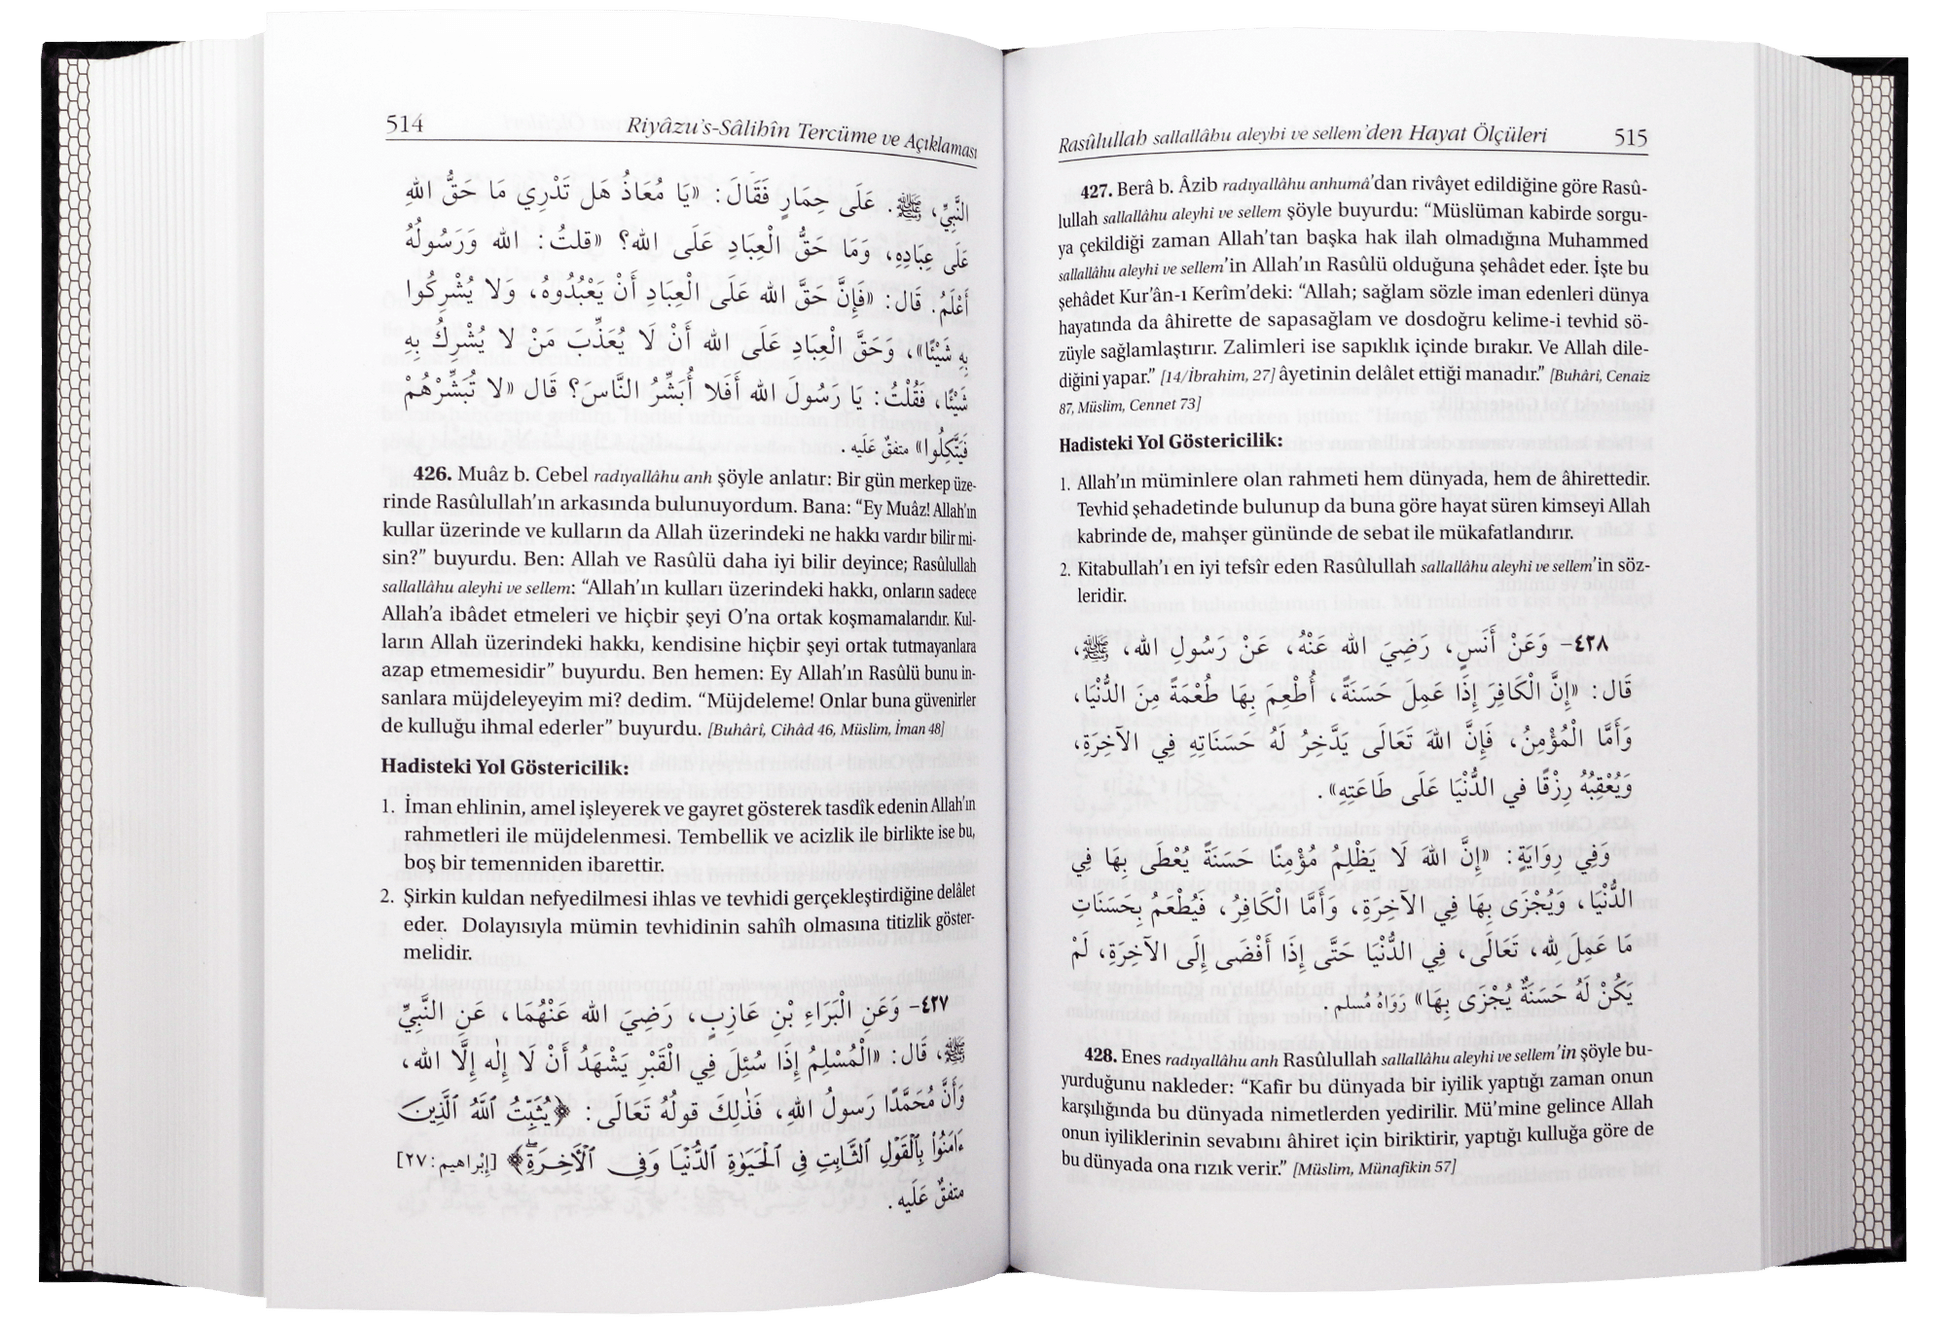 514
Riyâzu's-Sâlihîn Tercüme ve Açıklaması
النَّبِيِّ، ﷺ. عَلَى حِمَارٍ فَقَالَ: «يَا مُعَاذُ هَل تَدْرِي مَا حَقُّ الله
عَلَى عِبَادِهِ، وَمَا حَقُّ الْعِبَادِ عَلَى الله؟ «قلتُ: الله وَرَسُولُهُ
أَعْلَمُ. قَال: «فَإِنَّ حَقَّ الله عَلَى الْعِبَادِ أَنْ يَعْبُدُوهُ، وَلا يُشْرِكُوا
بِهِ شَيْئًا»، وَحَقَّ الْعِبَادِ عَلَى الله أَنْ لَا يُعَذِّبَ مَنْ لا يُشْرِكُ بِهِ
شَيْئًا، فَقُلْتُ: يَا رَسُولَ الله أَفَلا أُبَشِّرُ النَّاسَ؟ قَال «لا تُبَشِّرْهُمْ
فَيَتَّكِلُوا» متفقٌ عَلَيه .
426. Muâz b. Cebel radıyallâhu anh şöyle anlatır: Bir gün merkep üze-
rinde Rasûlullah'ın arkasında bulunuyordum. Bana: “Ey Muâz! Allah'ın
kullar üzerinde ve kulların da Allah üzerindeki ne hakkı vardır bilir mi-
sin?” buyurdu. Ben: Allah ve Rasûlü daha iyi bilir deyince; Rasûlullah
sallallâhu aleyhi ve sellem: “Allah'ın kulları üzerindeki hakkı, onların sadece
Allah'a ibâdet etmeleri ve hiçbir şeyi O'na ortak koşmamalarıdır. Kul-
ların Allah üzerindeki hakkı, kendisine hiçbir şeyi ortak tutmayanlara
azap etmemesidir” buyurdu. Ben hemen: Ey Allah'ın Rasûlü bunu in-
sanlara müjdeleyeyim mi? dedim. “Müjdeleme! Onlar buna güvenirler
de kulluğu ihmal ederler” buyurdu. [Buhâri, Cihâd 46, Müslim, İman 48]
Hadisteki Yol Göstericilik:
1. İman ehlinin, amel işleyerek ve gayret gösterek tasdîk edenin Allah'ın
rahmetleri ile müjdelenmesi. Tembellik ve acizlik ile birlikte ise bu,
boş bir temenniden ibarettir.
2. Şirkin kuldan nefyedilmesi ihlas ve tevhidi gerçekleştirdiğine delâlet
eder. Dolayısıyla mümin tevhidinin sahîh olmasına titizlik göster-
melidir.
٤٢٧- وَعَنِ الْبَرَاءِ بْنِ عَازِبٍ، رَضِيَ الله عَنْهُمَا، عَنِ النَّبِيِّ
ﷺ، قَال: «الْمُسْلِمُ إِذَا سُئِلَ فِي الْقَبْرِ يَشْهَدُ أَنْ لَا إِلٰه إِلَّا الله،
وَأَنَّ مُحَمَّدًا رَسولُ اللهِ، فَذٰلِكَ قولُهُ تَعَالَى: ﴿يُثَبِّتُ ٱللَّهُ ٱلَّذِينَ
ءَامَنُواْ بِٱلْقَوْلِ الثَّابِتِ فِي الْحَيَوٰةِ الدُّنْيَا وَفِي ٱلْأَخِرَةِۖ﴾ [إبْراهيم: ٢٧]
متفقٌ عَلَيه .
Rasûlullah sallallâhu aleyhi ve sellem'den Hayat Ölçüleri
515
427. Berâ b. Âzib radıyallâhu anhumâ'dan rivâyet edildiğine göre Rasû-
lullah sallallâhu aleyhi ve sellem şöyle buyurdu: “Müslüman kabirde sorgu-
ya çekildiği zaman Allah'tan başka hak ilah olmadığına Muhammed
sallallâhu aleyhi ve sellem'in Allah'ın Rasûlü olduğuna şehâdet eder. İşte bu
şehâdet Kur'ân-ı Kerîm'deki: “Allah; sağlam sözle iman edenleri dünya
hayatında da âhirette de sapasağlam ve dosdoğru kelime-i tevhid sö-
züyle sağlamlaştırır. Zalimleri ise sapıklık içinde bırakır. Ve Allah dile-
diğini yapar.” [14/İbrahim, 27] âyetinin delâlet ettiği manadır.” [Buhâri, Cenaiz
87, Müslim, Cennet 73]
Hadisteki Yol Göstericilik:
1. Allah'ın müminlere olan rahmeti hem dünyada, hem de âhirettedir.
Tevhid şehadetinde bulunup da buna göre hayat süren kimseyi Allah
kabrinde de, mahşer gününde de sebat ile mükafatlandırır.
2. Kitabullah'ı en iyi tefsîr eden Rasûlullah sallallâhu aleyhi ve sellem'in söz-
leridir.
٤٢٨- وَعَنْ أَنَسٍ، رَضِيَ الله عَنْهُ، عَنْ رَسُولِ الله، ﷺ،
قَال: «إِنَّ الْكَافِرَ إِذَا عَمِلَ حَسَنَةً، أُطْعِمَ بِهَا طُعْمَةً مِنَ الدُّنْيَا،
وَأَمَّا الْمُؤْمِنُ، فَإِنَّ اللهَ تَعَالَى يَدَّخِرُ لَهُ حَسَنَاتِهِ فِي الآخِرَةِ،
وَيُعْقِبُهُ رِزْقًا في الدُّنْيَا عَلَى طَاعَتِهِ».
وَفِي رِوَايَةٍ: «إِنَّ اللهَ لَا يَظْلِمُ مُؤْمِنًا حَسَنَةً يُعْطَى بِهَا فِي
الدُّنْيَا، وَيُجْزَى بِهَا فِي الآخِرَةِ، وَأَمَّا الْكَافِرُ، فَيُطْعَمُ بِحَسَنَاتِ
مَا عَمِلَ لِلهِ، تَعَالَى، فِي الدُّنْيَا حَتَّى إِذَا أَفْضَى إِلَى الآخِرَةِ، لَمْ
يَكُنْ لَهُ حَسَنَةٌ يُجْزَى بِهَا» رَوَاهُ مُسلم .
428. Enes radıyallâhu anh Rasûlullah sallallâhu aleyhi ve sellem'in şöyle bu-
yurduğunu nakleder: “Kafir bu dünyada bir iyilik yaptığı zaman onun
karşılığında bu dünyada nimetlerden yedirilir. Mü'mine gelince Allah
onun iyiliklerinin sevabını âhiret için biriktirir, yaptığı kulluğa göre de
bu dünyada ona rızık verir.” [Müslim, Münafikin 57]